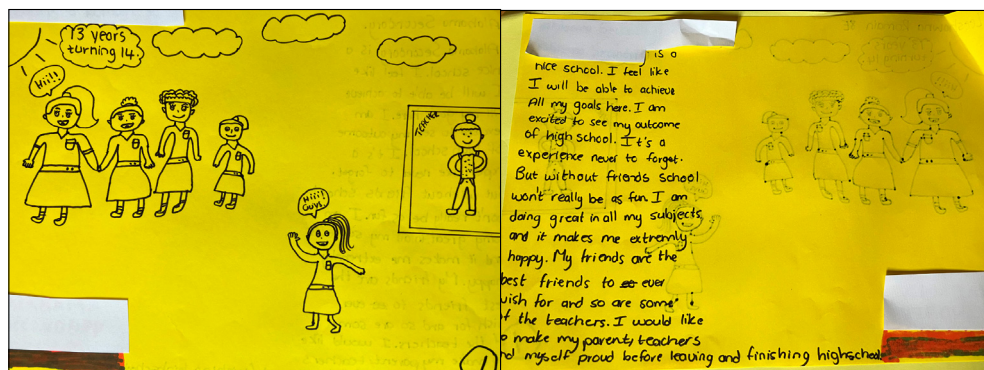 13 years
turning 14.
Hii!!
TEACHER
Hiii!
Guys!
is a
nice school. I feel like
I will be able to achieve
All my goals here. I am
excited to see my outcome
of high school. It's a
experience never to forget.
But without friends school
won't really be as fun. I am
doing great in all my subjects
and it makes me extremly
happy. My friends are the
best friends to ever
wish for and so are some
of the teachers. I would like
to make my parent, teachers
nd myself proud before leaving and finishing highschool.